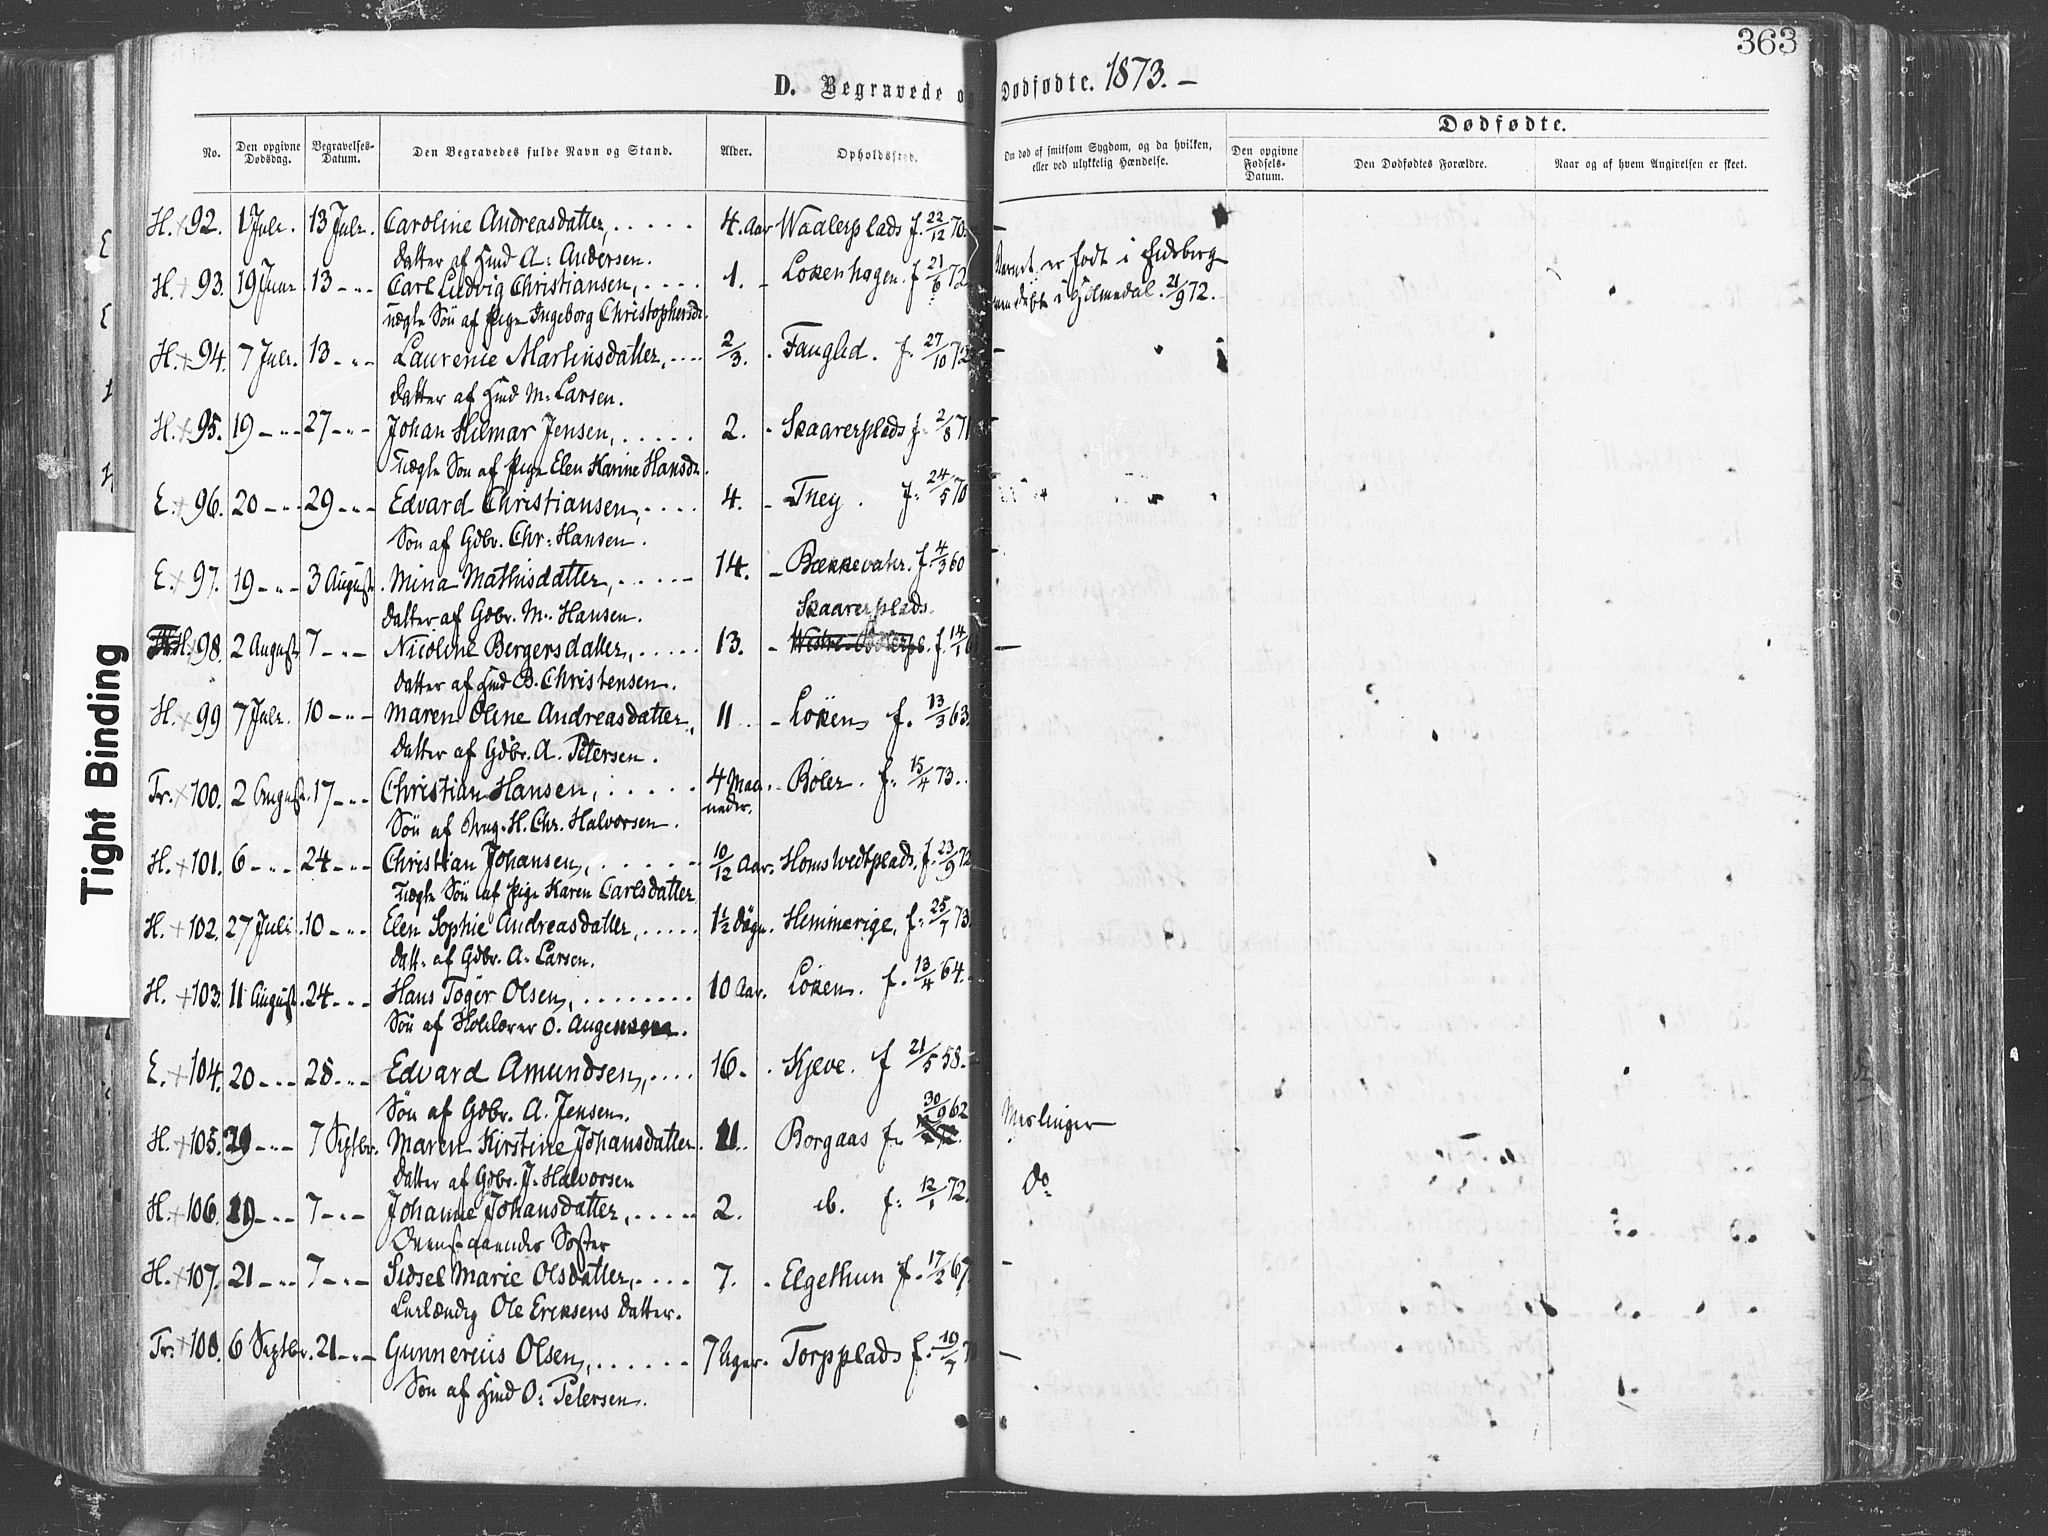 363
D. Begravede og Dødfødte. 1873. –
Dødfødte.
No.
Den opgivne Dødsdag.
Begravelses-Datum.
Den Begravedes fulde Navn og Stand.
Alder.
Opholdssted.
Om død af smitsom Sygdom, og da hvilken, eller ved ulykkelig Hændelse.
Den opgivne Fødsels-Datum.
Den Dødfødtes Forældre.
Naar og af hvem Angivelsen er skeet.
H. + 92. 1 Juli. 13 Juli. Caroline Andreasdatter, . . . . . 4. Aar Waalerplads f. 22/12 70. –
Datter af Hmd A: Andersen.
H. + 93. 19 Juni 13 – „ – Carl Ludvig Christiansen, . . . . 1. – Løkenhagen. f. 21/6 72 Barnet er født i Eidsberg
uægte Søn af Pige Ingeborg Christophersd. døbt i Hjemedal. 21/9 72.
H. + 94. 7 Juli. 13 – „ – Laurence Martinsdatter, . . . . 2/3. . Fanglid. f. 27/10 72 –
Datter af Hmd M. Larsen.
H. + 95. 19 – „ – 27 – „ – Johan Hilmar Jensen, . . . . . 2. . Skaarerplads f. 2/8 71
Uægte Søn af Pige Elen Karine Hansd.
E. + 96. 20 – „ – 29 – „ – Edvard Christiansen, . . . . 4. – f. 24/5 70
Søn af Gdbr. Chr. Hansen.
E. + 97. 19 – „ – 3 August. Mina Mathisdatter, . . . . – 14. – Bækkevater. f. 4/3 60 –
Datter af Gdbr. M. Hansen. Skaarerplads.
H. + 98. 2 August 7 – „ – Nicoline Bergersdatter, . . . . . 13. – f. 14/1 61 –
Datter af Hmd B. Christensen.
H. + 99 7 Juli. 10 – „ – Maren Oline Andreasdatter, 11 . – Løken f. 13/3 63.
Datter af Gdbr. A. Petersen.
Tr. + 100. 2 August. 17 – „ – Christian Hansen, . . . . . 4 Maaneder. Bøler. f. 15/4 73. .
Søn af H. Chr. Halvorsen.
H. + 101. 6 – „ – 24 – „ – Christian Johansen, . . . . . 10/12 Aar. Homstvedtplads. f. 23/9 72
Uægte Søn af Pige Karen Carlsdatter
H. + 102. 27 Juli. 10 – „ – Elen Sophie Andreasdatter, . . . . . 1½ Døgn. Hemmerige, f. 25/7 73.
Datt. af Gdbr. A. Larsen.
H. + 103. 11 August. 24 – „ – Hans Toger Olsen, . . . . . . . . 10 Aar. Løken. f. 13/4 64.
Søn af O.
E. + 104. 20 – „ – 28 – „ – Edvard Amundsen, . . . . 16. . Kjeve. f 21/5 58. –
Søn af Gdbr. A. Jensen.
H. + 105. 29 – „ – 7 Septbr. Maren Kirstine Johansdatter. 11. Borgaas f. 30/9 62 Mæslinger
Datter af Gdbr. J. Halvorsen
H. + 106. – „ – 7 – „ – Johanne Johansdatter, . . . . . 2. ib. f. 12/1 72. Do.
Ovenstaaendes Søster
H. + 107. 21 – „ – 7 – „ – Sidsel Marie Olsdatter, . . . . 7. . Elgethun f. 17/2 67. –
Ole Eriksens Datter.
Tr. + 108. 6 Septbr. 21 – „ – Gunnerius Olsen, . . . . . . 7 Uger. Torpplads f. 19/7 73 –
Søn af Hmd O: Petersen.
Tight Binding